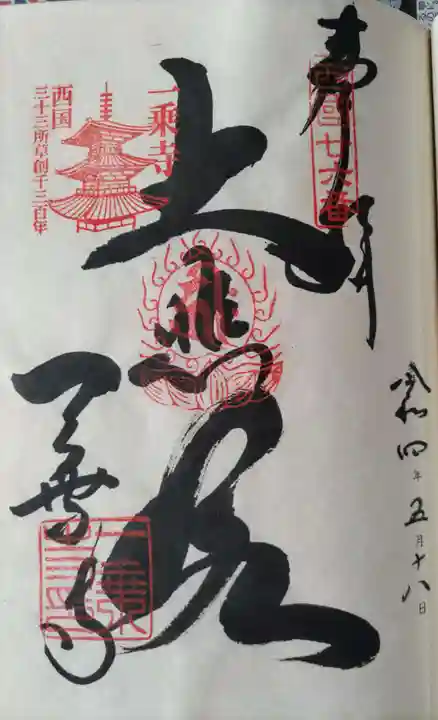 奉拝
西国廿六番
令和四年五月十八日
大悲閣
一乗寺
一乗寺
西国
三十三所草創千三百年